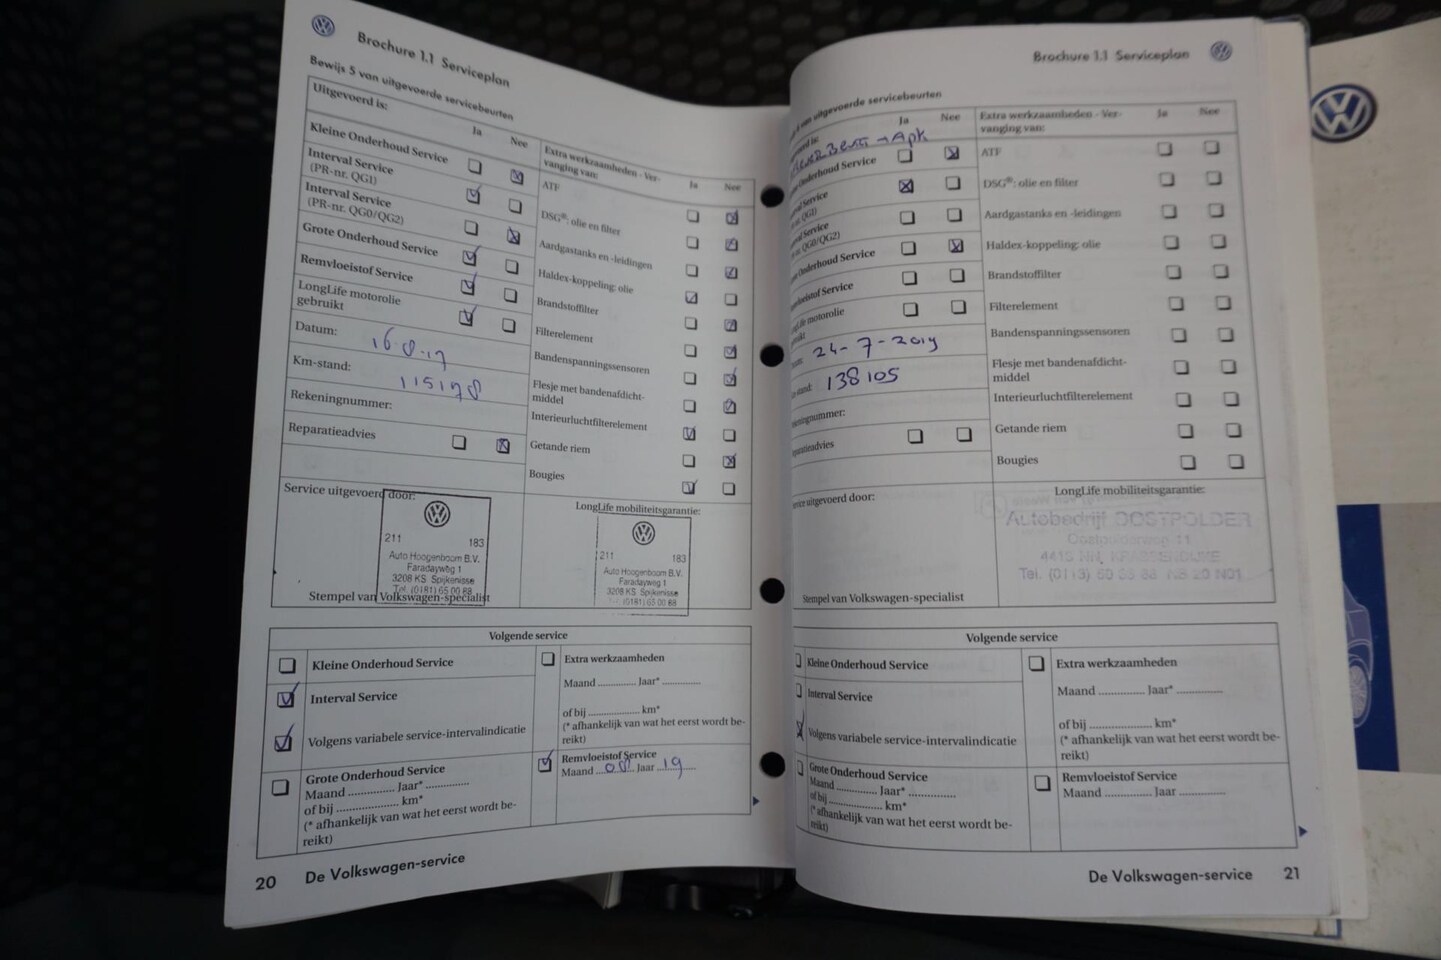 Brochure 1.1 Serviceplan
Bewijs 5 van uitgevoerde servicebeurten
Uitgevoerd is:
Ja
Nee
Kleine Onderhoud Service
Interval Service
(PR-nr. QG1)
Interval Service
(PR-nr. QG0/QG2)
Grote Onderhoud Service
Remvloeistof Service
LongLife motorolie
gebruikt
Datum: 16.8.17
Km-stand: 115178
Rekeningnummer:
Reparatieadvies
Extra werkzaamheden - Ver-
vanging van:
Ja
Nee
ATF
DSG®: olie en filter
Aardgastanks en -leidingen
Haldex-koppeling: olie
Brandstoffilter
Filterelement
Bandenspanningssensoren
Flesje met bandenafdicht-
middel
Interieurluchtfilterelement
Getande riem
Bougies
Service uitgevoerd door:
211 183
Auto Hoogenboom B.V.
Faradayweg 1
3208 KS Spijkenisse
Tel. (0181) 65 00 88
Stempel van Volkswagen-specialist
LongLife mobiliteitsgarantie:
211 183
Auto Hoogenboom B.V.
Faradayweg 1
3208 KS Spijkenisse
(0181) 65 00 88
Volgende service
Kleine Onderhoud Service
Interval Service
Volgens variabele service-intervalindicatie
Grote Onderhoud Service
Maand .............. Jaar* ..............
of bij .................... km*
(* afhankelijk van wat het eerst wordt be-
reikt)
Extra werkzaamheden
Maand .............. Jaar* ..............
of bij .................... km*
(* afhankelijk van wat het eerst wordt be-
reikt)
Remvloeistof Service
Maand 08 Jaar 19
20 De Volkswagen-service
Brochure 1.1 Serviceplan
5 van uitgevoerde servicebeurten
Ja
Nee
Apk
Onderhoud Service
Service
QG1)
Service
QG0/QG2)
Onderhoud Service
Service
motorolie
24-7-2019
138105
Extra werkzaamheden - Ver-
vanging van:
Ja
Nee
ATF
DSG®: olie en filter
Aardgastanks en -leidingen
Haldex-koppeling: olie
Brandstoffilter
Filterelement
Bandenspanningssensoren
Flesje met bandenafdicht-
middel
Interieurluchtfilterelement
Getande riem
Bougies
uitgevoerd door:
Stempel van Volkswagen-specialist
LongLife mobiliteitsgarantie:
Autobedrijf OOSTPOLDER
Volgende service
Kleine Onderhoud Service
Interval Service
Volgens variabele service-intervalindicatie
Grote Onderhoud Service
Maand .............. Jaar* ..............
of bij .................... km*
(* afhankelijk van wat het eerst wordt be-
reikt)
Extra werkzaamheden
Maand .............. Jaar* ..............
of bij .................... km*
(* afhankelijk van wat het eerst wordt be-
reikt)
Remvloeistof Service
Maand .............. Jaar ..............
De Volkswagen-service 21